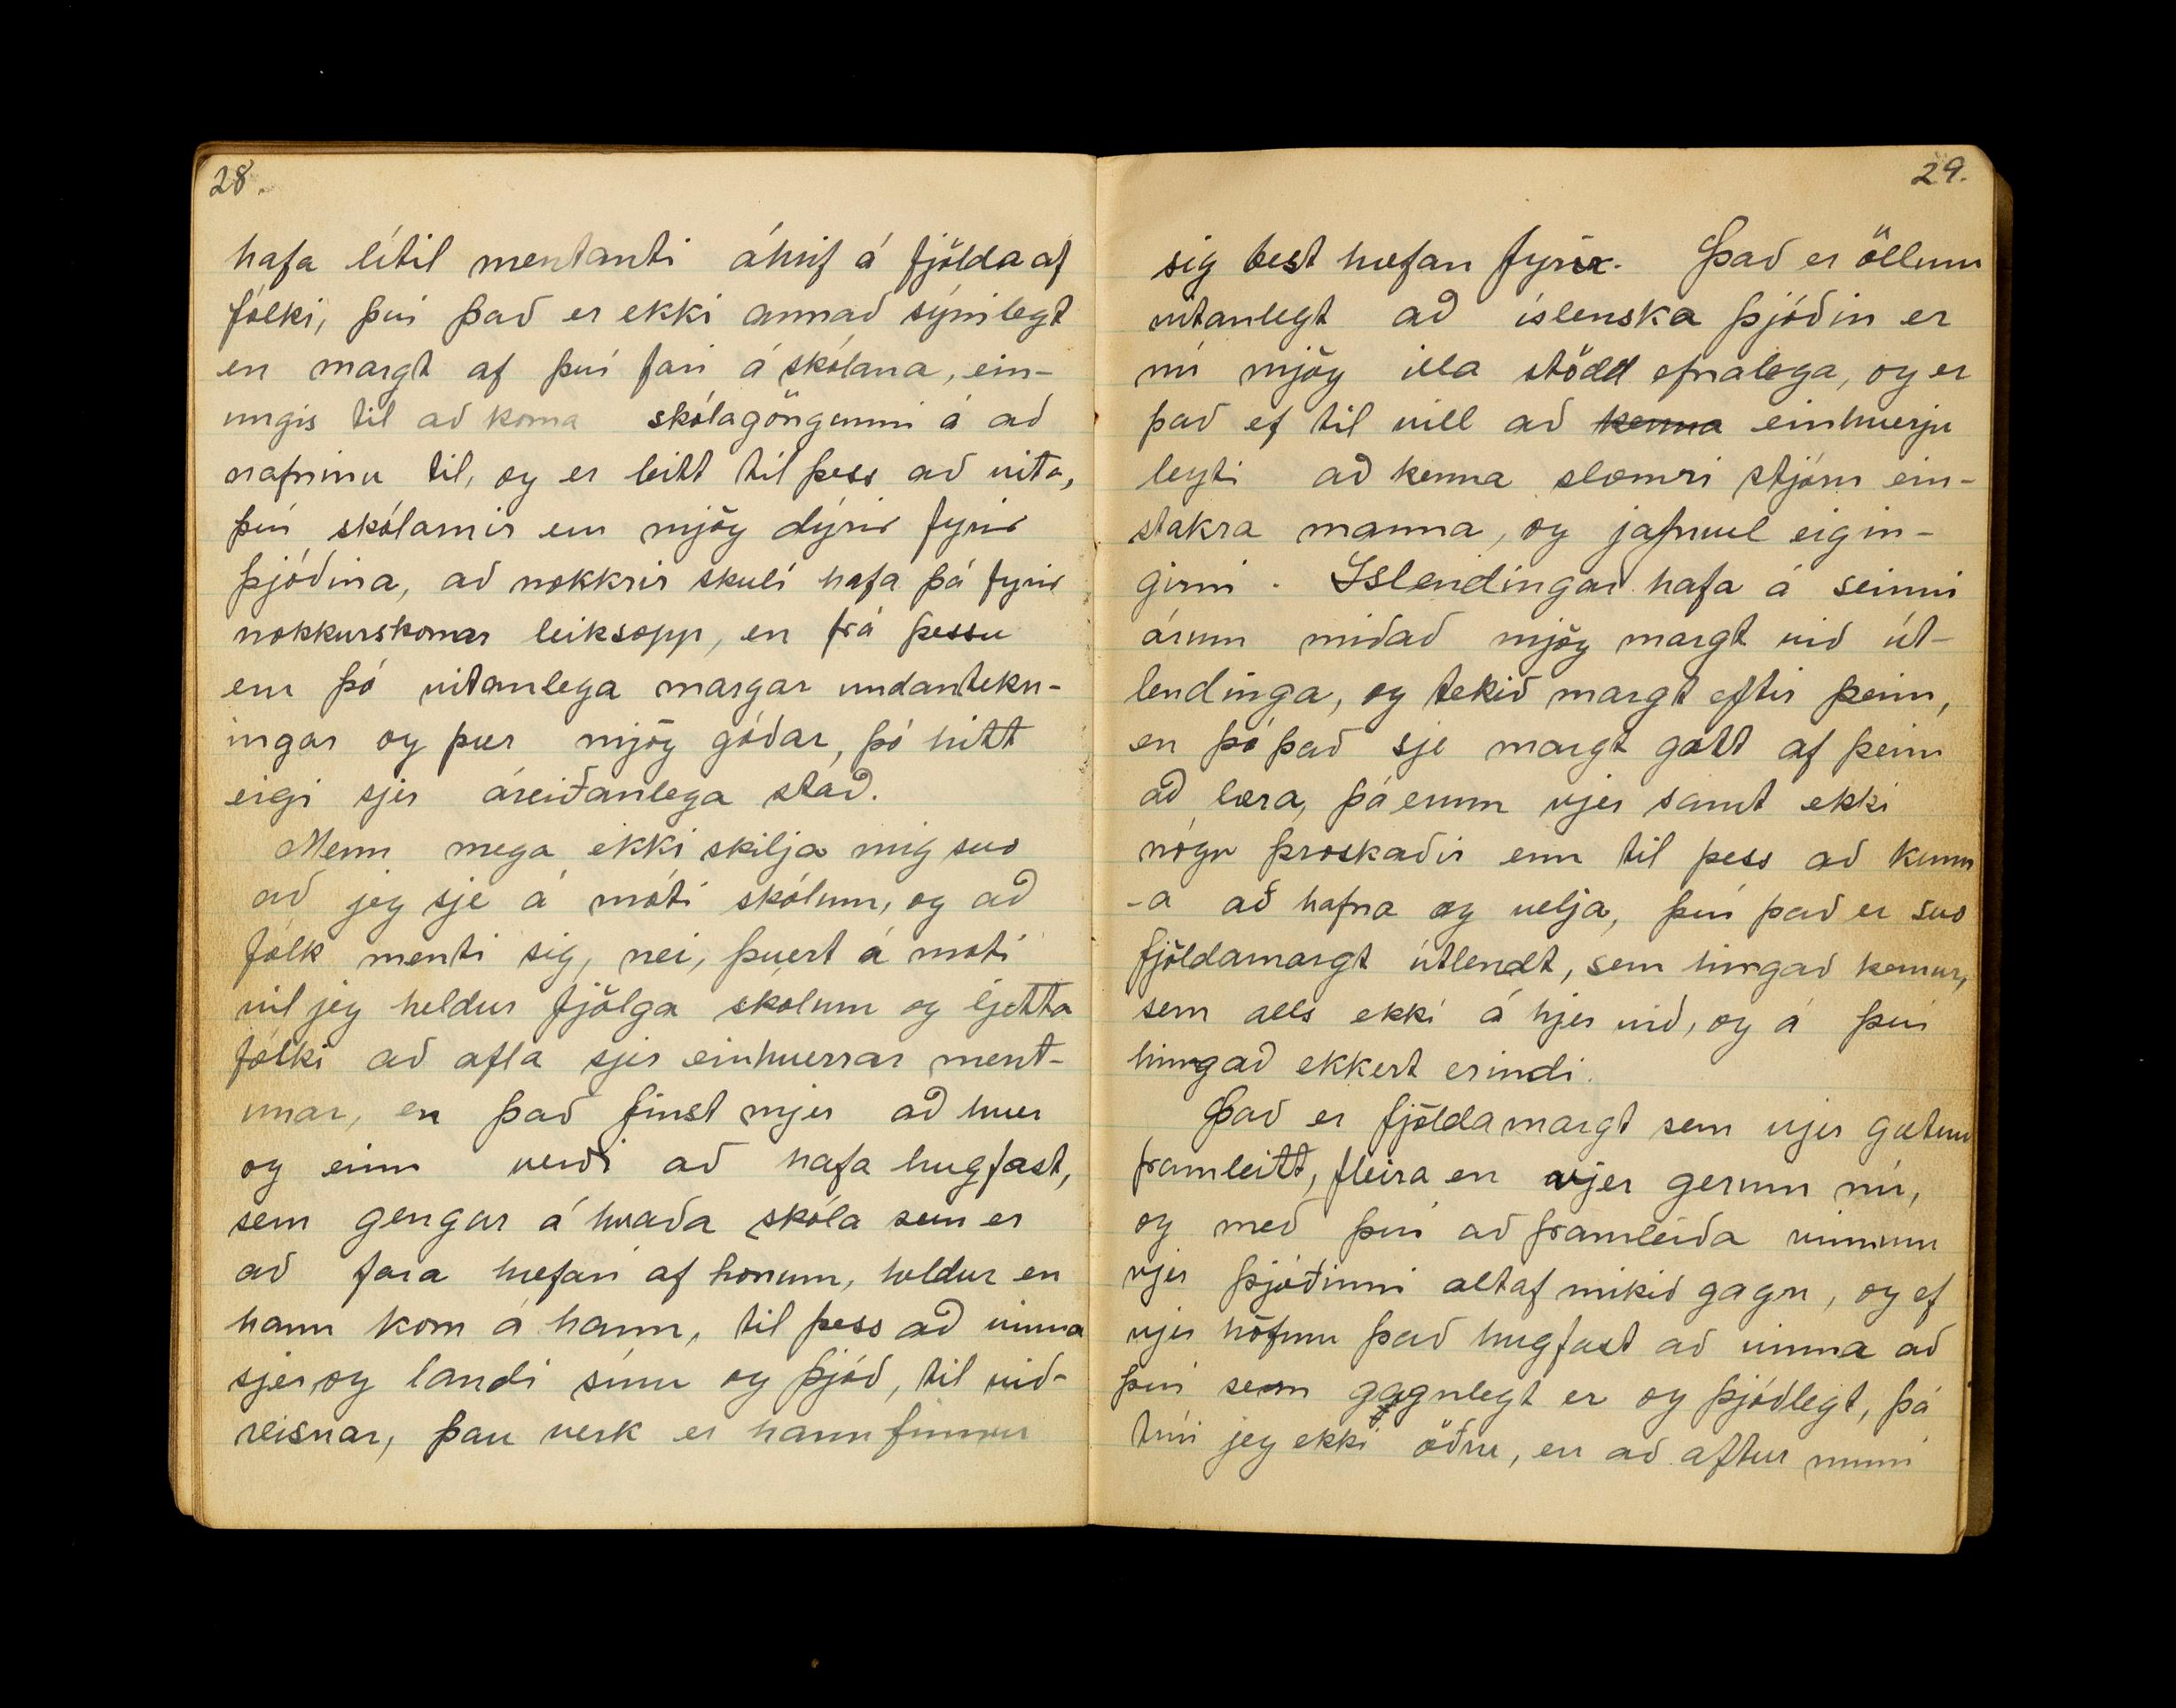 28.
hafa lítil mentanti áhrif á fjölda af
fólki, því það er ekki annað sýnilegt
en margt af því fari á skólana, ein-
ungis til að koma skólagöngunni á að
nafninu til, og er leitt til þess að vita,
því skólarnir eru mjög dýrir fyrir
þjóðina, að nokkrir skuli hafa þá fyrir
nokkurskonar leiksopp, en frá þessu
eru þó vitanlega margar undantekn-
ingar og þær mjög góðar, þó hitt
eigi sjer áreiðanlega stað.
Menn mega ekki skilja mig svo
að jeg sje á móti skólum, og að
fólk menti sig, nei, þvert á moti
vil jeg heldur fjölga skólum og ljetta
fólki að afla sjer einhverrar ment-
unar, en það finst mjer að hver
og einn verði að hafa hugfast,
sem gengur á hvaða skóla sem er
að fara hæfari af honum, heldur en
hann kom á hann, til þess að vinna
sjer og landi sínu og þjóð, til við-
reisnar, þau verk er hann finnur
29.
sig best hæfan fyrir. Það er öllum
vitanlegt að íslenska þjóðin er
nú mjög illa stödd efnalega, og er
það ef til vill að kenna einhverju
leyti að kenna slæmri stjórn ein-
stakra manna, og jafnvel eigin-
girni. Íslendingar hafa á seinni
árum miðað mjög margt við út-
lendinga, og tekið margt eftir þeim,
en þó það sje margt gott af þeim
að læra, þá erum vjer samt ekki
nógu þroskaðir enn til þess að kunn
-a að hafna og velja, því það er svo
fjöldamargt útlendt, sem hingað kemur,
sem alls ekki á hjer við, og á því
hingað ekkert erindi.
Það er fjöldamargt sem vjer gætum
framleitt, fleira en vjer gerum nú,
og með því að framleiða vinnum
vjer þjóðinni altaf mikið gagn, og ef
vjer höfum það hugfast að vinna að
því sem gagnlegt er og þjóðlegt, þá
trúi jeg ekki öðru, en að aftur muni